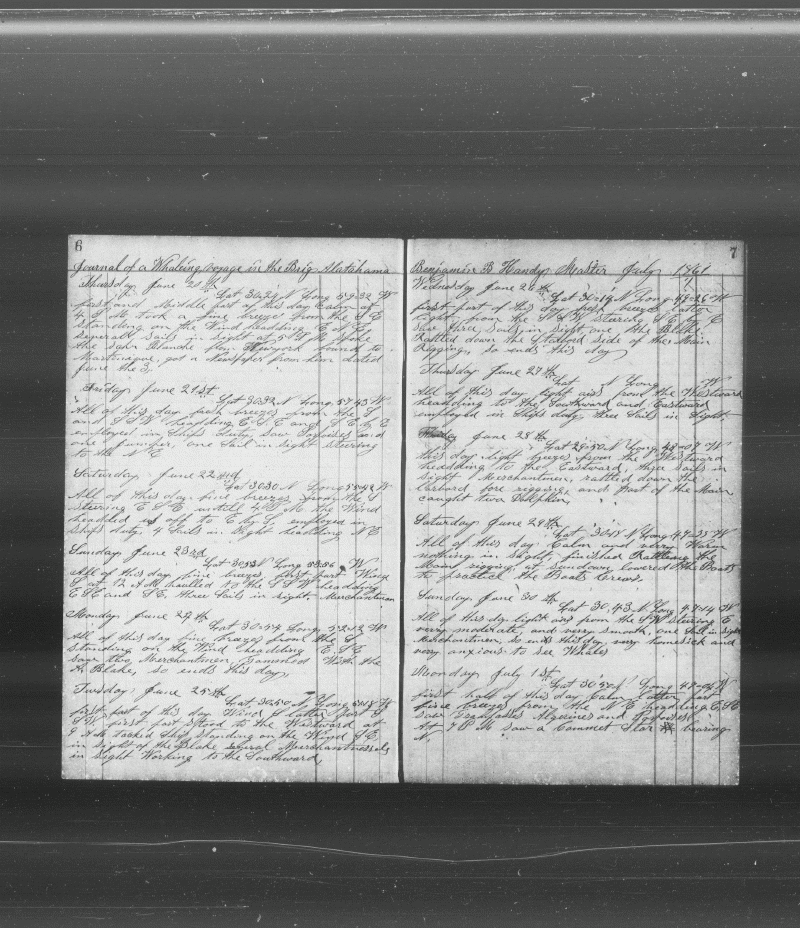 6
Journal of a Whaleing voyage in the Brig Alatahama
Thursday June 20th
Lat 30.29 N Long 59.32 W
first and Middle part of this day Calm at
4 P M took a fine breeze from the S E
Standing on the Wind headding E N E
Severall Sails in sight at 5 P M Spoke
the Schr Blanche from bound to
Martinique got a Newspaper from him dated
june the 3
Friday June 21st
Lat 30.32 N Long 57.43 W
All of this day fresh breezes from the S
and S S W headding E S E and S E by E
employed in Ships duty, saw Squires and
one , one Sail in sight steering
to the N E
Saturday June 22nd
Lat 30.30 N Long W
All of this day fine breezes from the S
Steering E S E untill 4 P M the Wind
headded us off to E by S, employed in
Ships duty. 4 Sails in Sight headding N E
Sunday June 23rd
Lat N Long 53.56 W
All of this day fine breezes first part Wind
S at 12 A M hauled to the S S W headding
E S E and S E, three Sails in sight. Merchantmen
Monday June 24th
Lat 30.54 Long 52.12 W
All of this day fine breezes from the S
Standing on the Wind headding E S E
saw two Merchantmen, Gammed With the
A. Blake, so ends this day,
Tuesday June 25th
Lat 30.50 N Long W
first part of this day Wind S latter part
S W, first part Stood to the Westward at
9 A M tacked Ship Standing on the Wind S E
in sight of the Blake several Merchantmen
in Sight Working to the Southward,
7
Benjamin B Handy Master July 1861
Wednesday June 26th
Lat 30.14 N Long W
first part of this day fresh breezes latter
light from the S S W steering S E by E
saw three Sails in sight one the Blake
Rattled down the Starbord side of the Main
Rigging, so ends this day
Thursday June 27th
Lat N Long W
All of this day light airs from the Westward
headding to the Southward and Eastward
employed in Ships duty, three Sails in Sight,
June 28th
Lat 29.50 N Long W
this day light breezes from the Westward
headding to the Eastward, three sails in
Sight Merchantmen, rattled down the
Larbord fore rigging, and part of the Main
caught two Dolphin,
Saturday June 29th
Lat N Long 47.35 W
All of this day Calm and very Warm
nothing in Sight finished Rattling the
Main rigging, at sundown lowered the Boats
to practice the Boats Crews.
Sunday June 30th
Lat 30.43 N Long 47.14 W
All of this day light airs from the S W steering E
very moderate, and very smooth, one Sail in sight
Merchantman, so ends this day very homesick and
very anxious to see Whales
Monday July 1st
Lat 30.50 N Long W
first half of this day Calm latter part
fine breezes from the N E headding E S E
saw Algerines and
At P M saw a Commet Star bearing
N,